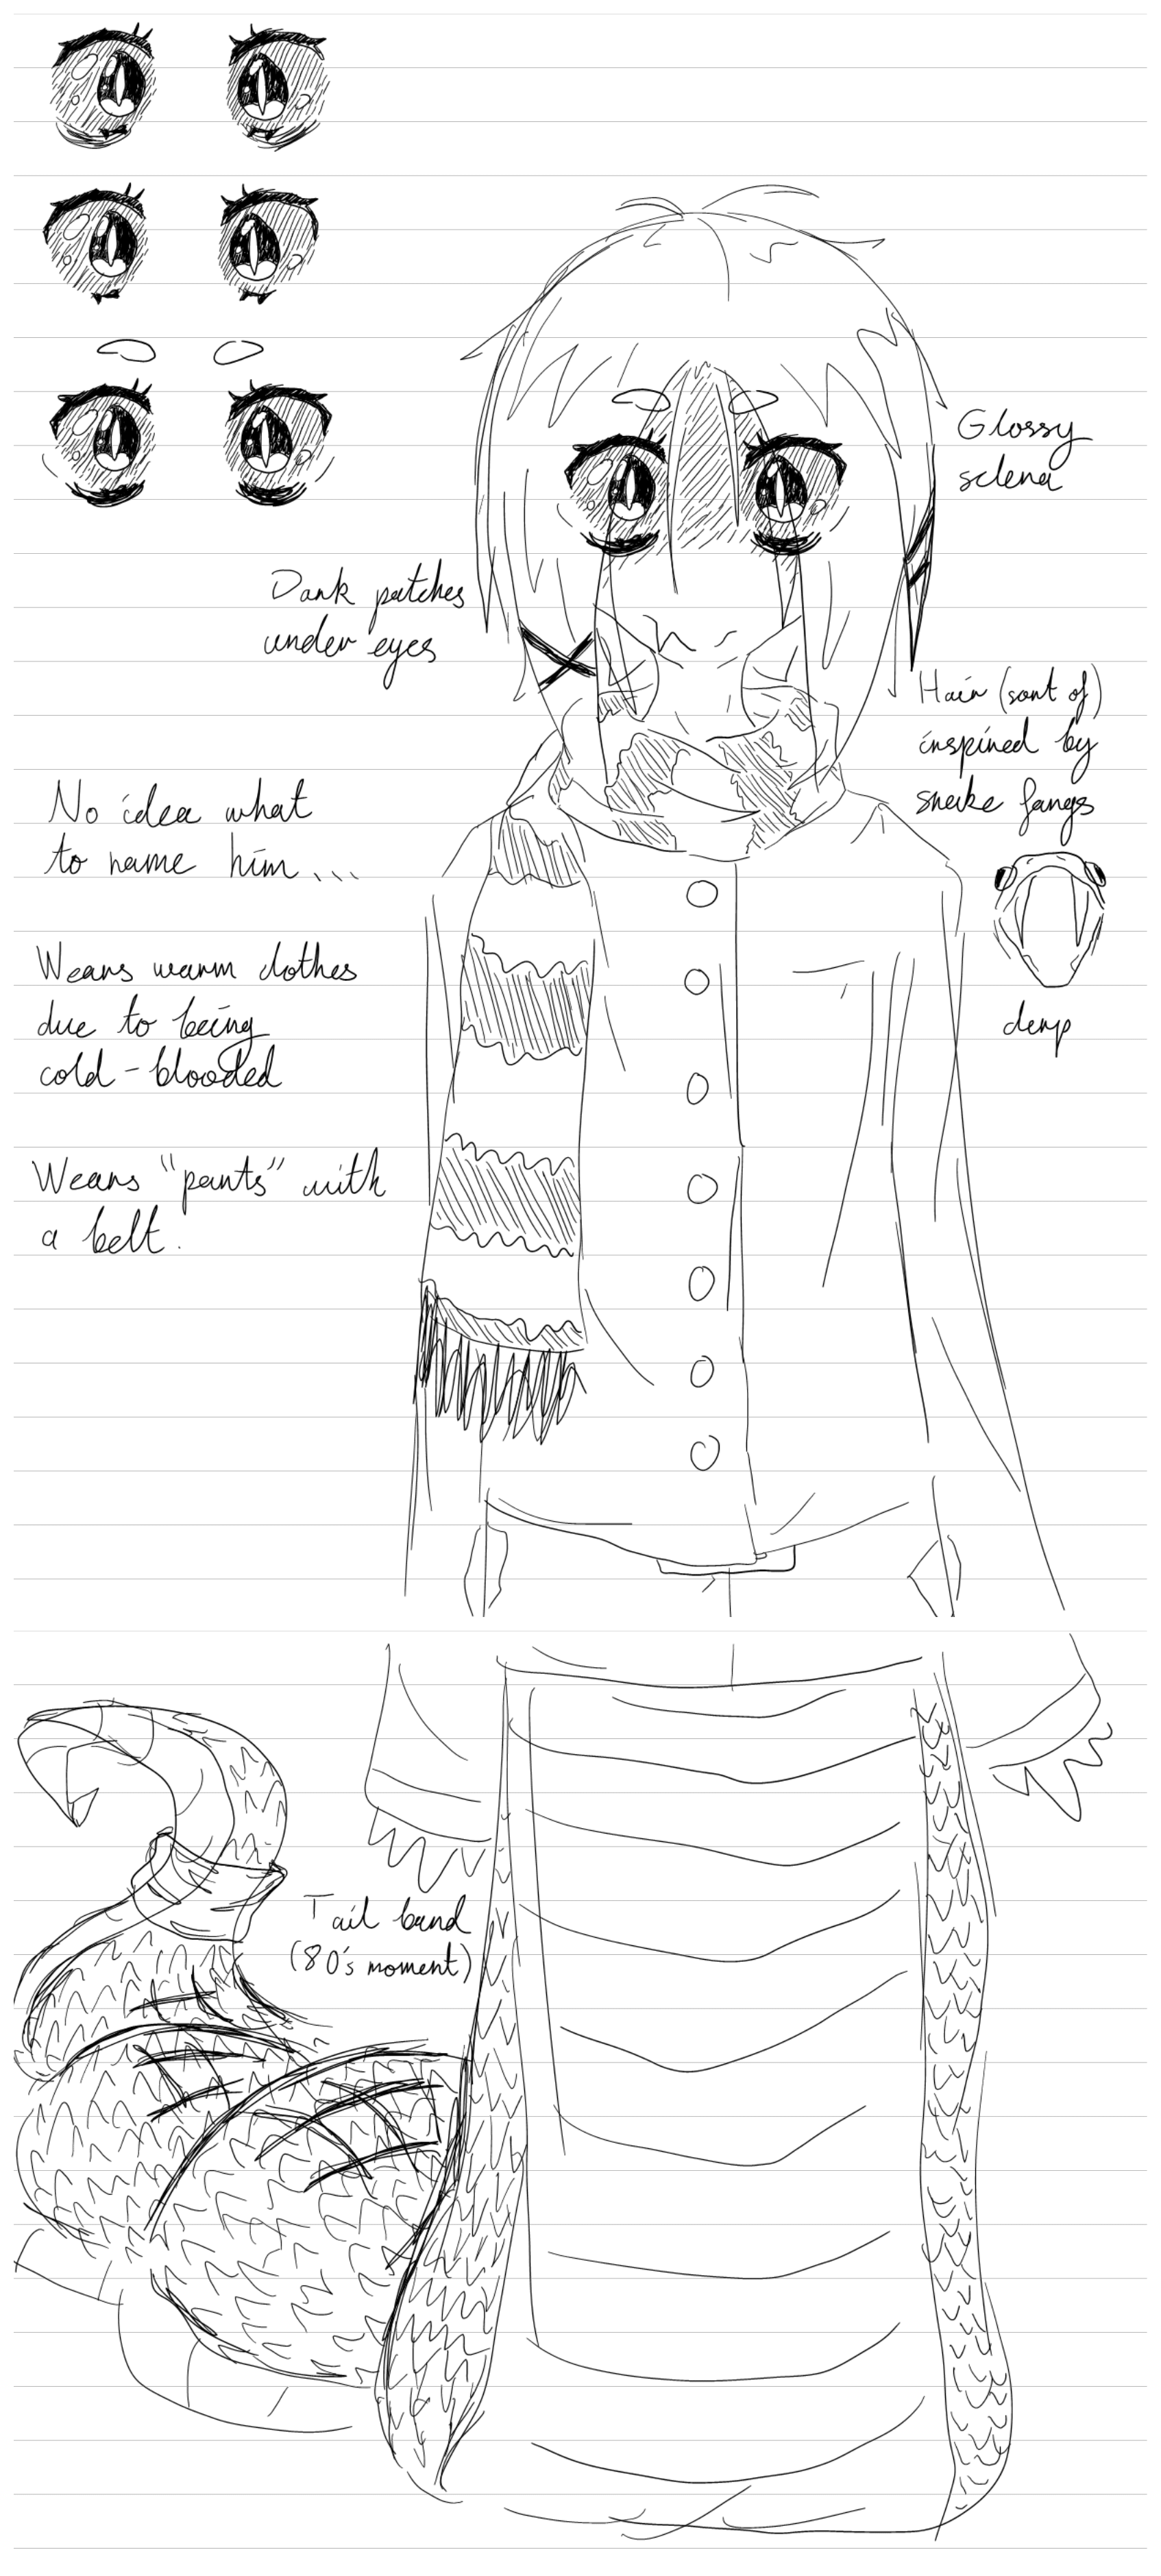 Glossy
sclera
Dark patches
under eyes
Hair (sort of)
inspired by
snake fangs
No idea what
to name him...
Wears warm clothes
due to being
cold-blooded
derp
Wears "pants" with
a belt.
Tail band
(80's moment)